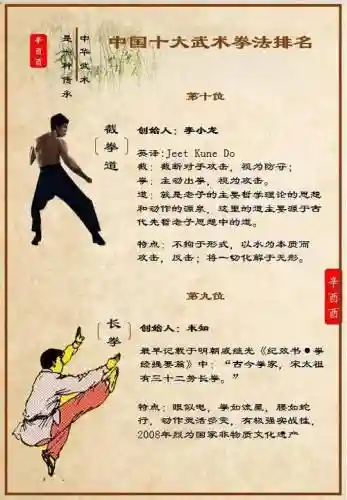 辛酉酉
中华武术
是一种传承
中国十大武术拳法排名
第十位
〔截拳道〕
创始人：李小龙
英译:Jeet Kune Do
截：截断对手攻击，视为防守；
拳：主动出拳，视为攻击。
道：就是老子的主要哲学理论的思想
和动作的源泉，这里的道主要源于古
代先哲老子思想中的道。
特点：不拘于形式，以水为本质而
攻击，反击；将一切化解于无形。
辛酉酉
第九位
〔长拳〕
创始人：未知
最早记载于明朝戚继光《纪效书●拳
经捷要篇》中：“古今拳家，宋太祖
有三十二势长拳。”
特点：眼似电，拳如流星，腰如蛇
行，动作灵活多变，有极强实战性，
2008年列为国家非物质文化遗产